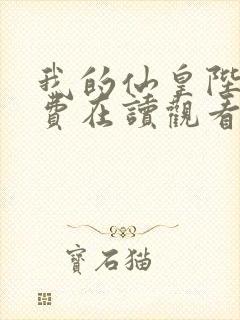 我的仙皇陛
費在讀觀看
寶石猫